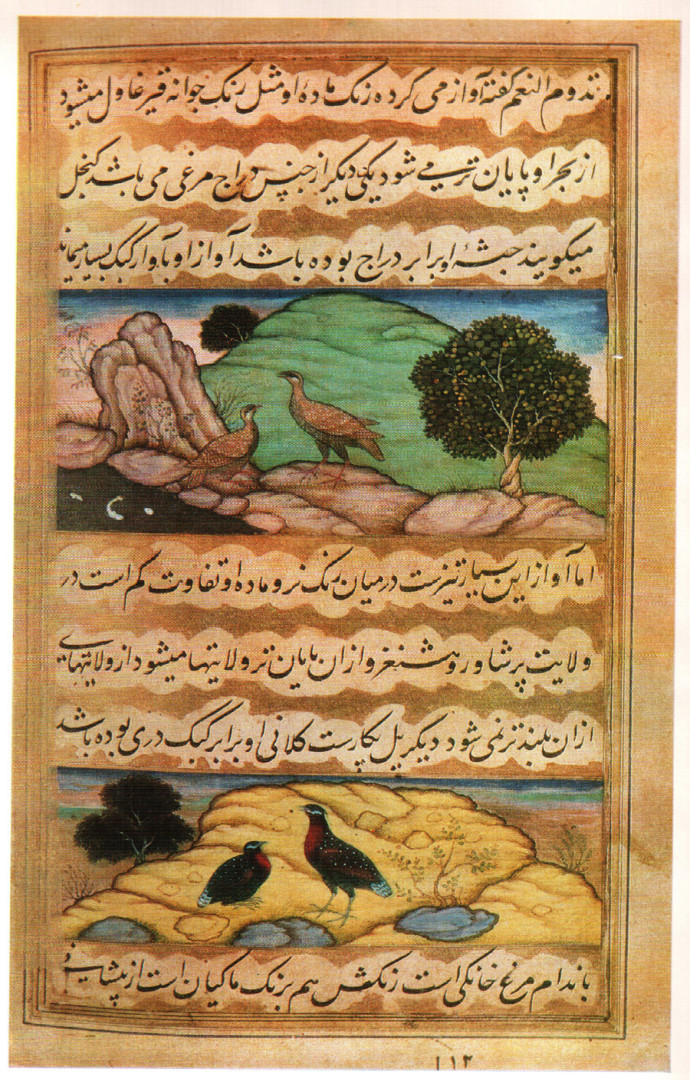 تدوم النعم گفته آواز می کرده رنگ ماده او مثل رنگ جوانه قیرغاول میشود
از بجراو پایان تر می شود یکی دیگر از جنس دراج مرغی می باشد کنجل
میکویند جثهٔ او برابر دراج بوده باشد آواز او بآواز کبک بسیار میماند
اما آواز این بسیار تیزست درمیان رنگ نر و ماده او تفاوت کم است در
ولایت پرشاور و هشنغر و ازان پایان تر ولایتها میشود از ولایتهای
ازان بلندتر نمی شود دیگر پل پکارست کلانی او برابر کبک دری بوده باشد
باندام مرغ خانکی است رنکش هم برنک ماکیان است از پیشانی
۱۱۲